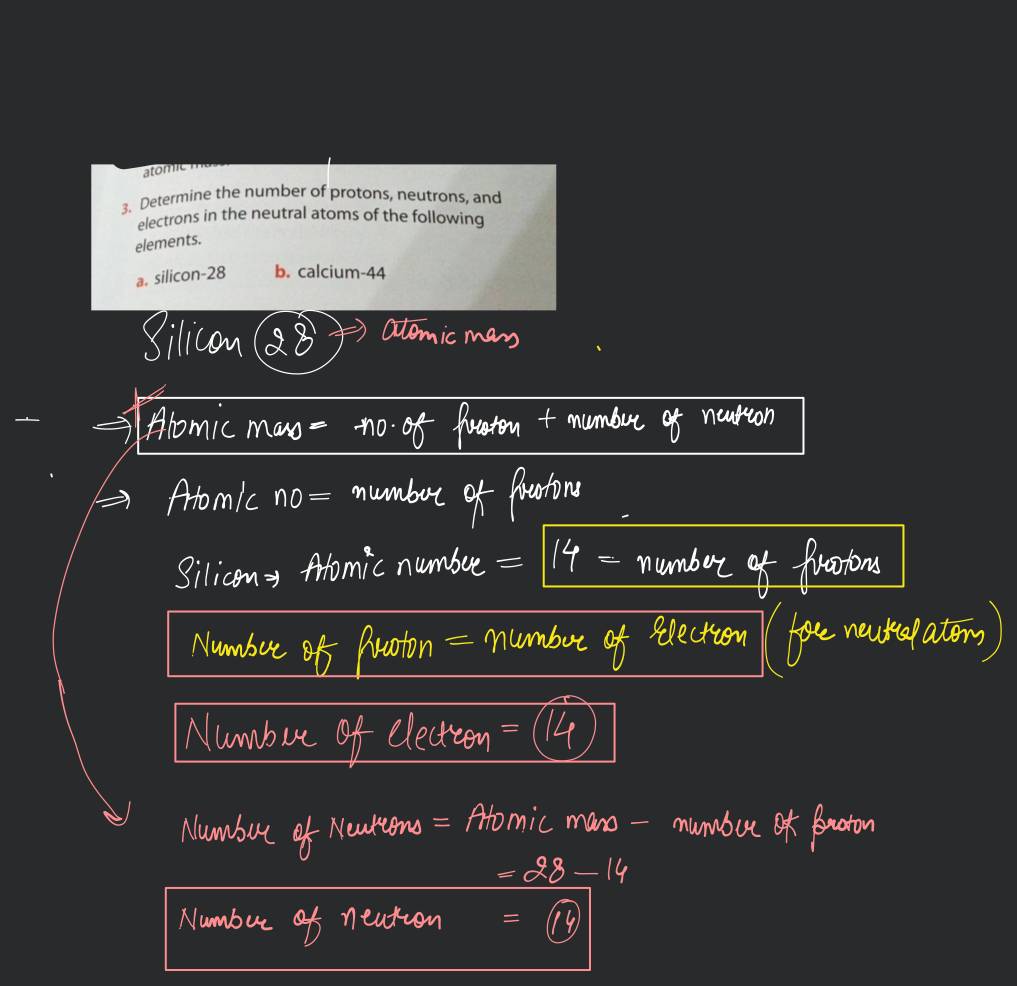 atomic
3. Determine the number of protons, neutrons, and
electrons in the neutral atoms of the following
elements.
a. silicon-28 b. calcium-44
Silicon 28 ⇒ atomic mass
⇒ Atomic mass = no. of proton + number of neutron
⇒ Atomic no = number of protons
Silicon → Atomic number = 14 = number of protons
Number of proton = number of electron (for neutral atom)
Number of electron = 14
Number of Neutrons = Atomic mass - number of proton
= 28 - 14
Number of neutron = 14